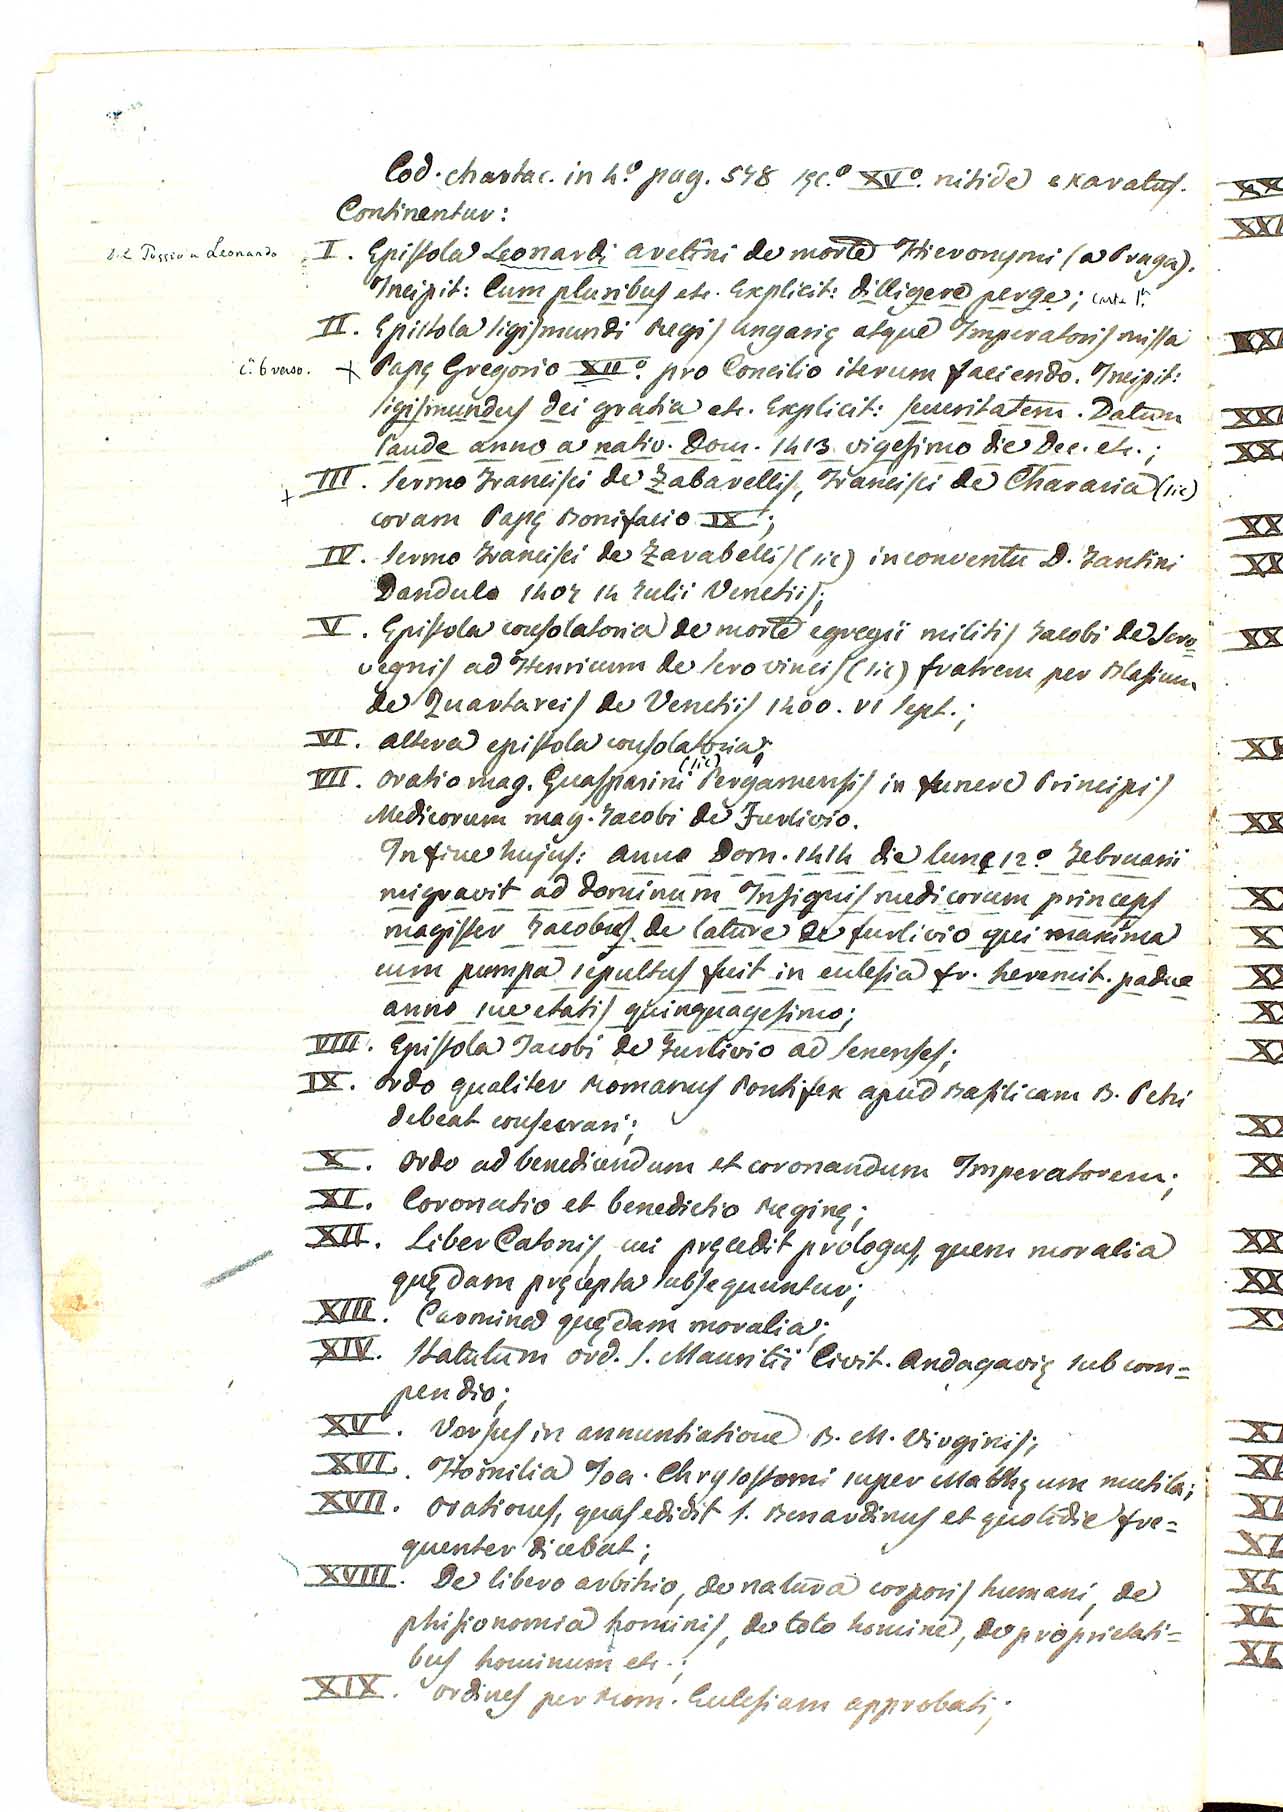 Cod. chartac. in 4.º pag. 578 sęc.º XVº. nitide exaratus.
Continentur:
I. Epistola Leonardi Aretini de morte Hieronymi (a Praga).
Del Poggio a Leonardo
Incipit: Cum pluribus etc. Explicit: dilligere perge; carta 1ª.
II. Epistola Sigismundi Regis Ungarię atque Imperatoris missa
c.ª 6 verso. + Papę Gregorio XIIº. pro Concilio iterum faciendo. Incipit:
Sigismundus dei gratia etc. Explicit: securitatem. Datum
Laude anno a nativ. Dom. 1413 vigesimo die Dec. etc.;
+ III. Sermo Francisci de Zabarellis, Francisci de Chararia (sic)
coram Papę Bonifacio IX;
IV. Sermo Francisci de Zarabellis (sic) in conventu D. Fantini
Dandulo 1407 14 Julii Venetiis;
V. Epistola consolatoria de morte egregii militis Jacobi de Scro
vegnis ad Henricum de Scrovincis (sic) fratrem per Blasium
de Quartareis de Venetiis 1400. VI Sept.;
VI. Altera epistola consolatoria;
VII. Oratio mag. Guasparini (sic) Pergamensis in funere Principis
Medicorum mag. Jacobi de Furlivio.
In fine hujus: anno Dom. 1414 die lunę 12º Februarii
migravit ad dominum Insignis medicorum princeps
magister Jacobus de la ture de furlivio qui maxima
cum pumpa sepultus fuit in eclesia fr. heremit. padue
anno sue etatis quinquagesimo;
VIII. Epistola Jacobi de Furlivio ad Senenses;
IX. Ordo qualiter Romanus Pontifex apud Basilicam B. Petri
debeat consecrari;
X. Ordo ad benedicendum et coronandum Imperatorem;
XI. Coronatio et benedictio Reginę;
XII. Liber Catonis, cui pręcedit prologus, quem moralia
quędam pręcepta subsequuntur;
XIII. Carmina quędam moralia;
XIV. Statutum ord. S. Mauritii Civit. Andagavię sub com=
pendio;
XV. Versus in annuntiatione B. M. Virginis;
XVI. Homilia Joa. Chrysostomi super Matthęum mutila;
XVII. Orationes, quas edidit S. Bernardinus et quotidie fre=
quenter dicebat;
XVIII. De libero arbitrio, de natura corporis humani, de
phisionomia hominis, de toto homine, de proprietati=
bus hominum etc.;
XIX. Ordines per Rom. Eclesiam approbati;